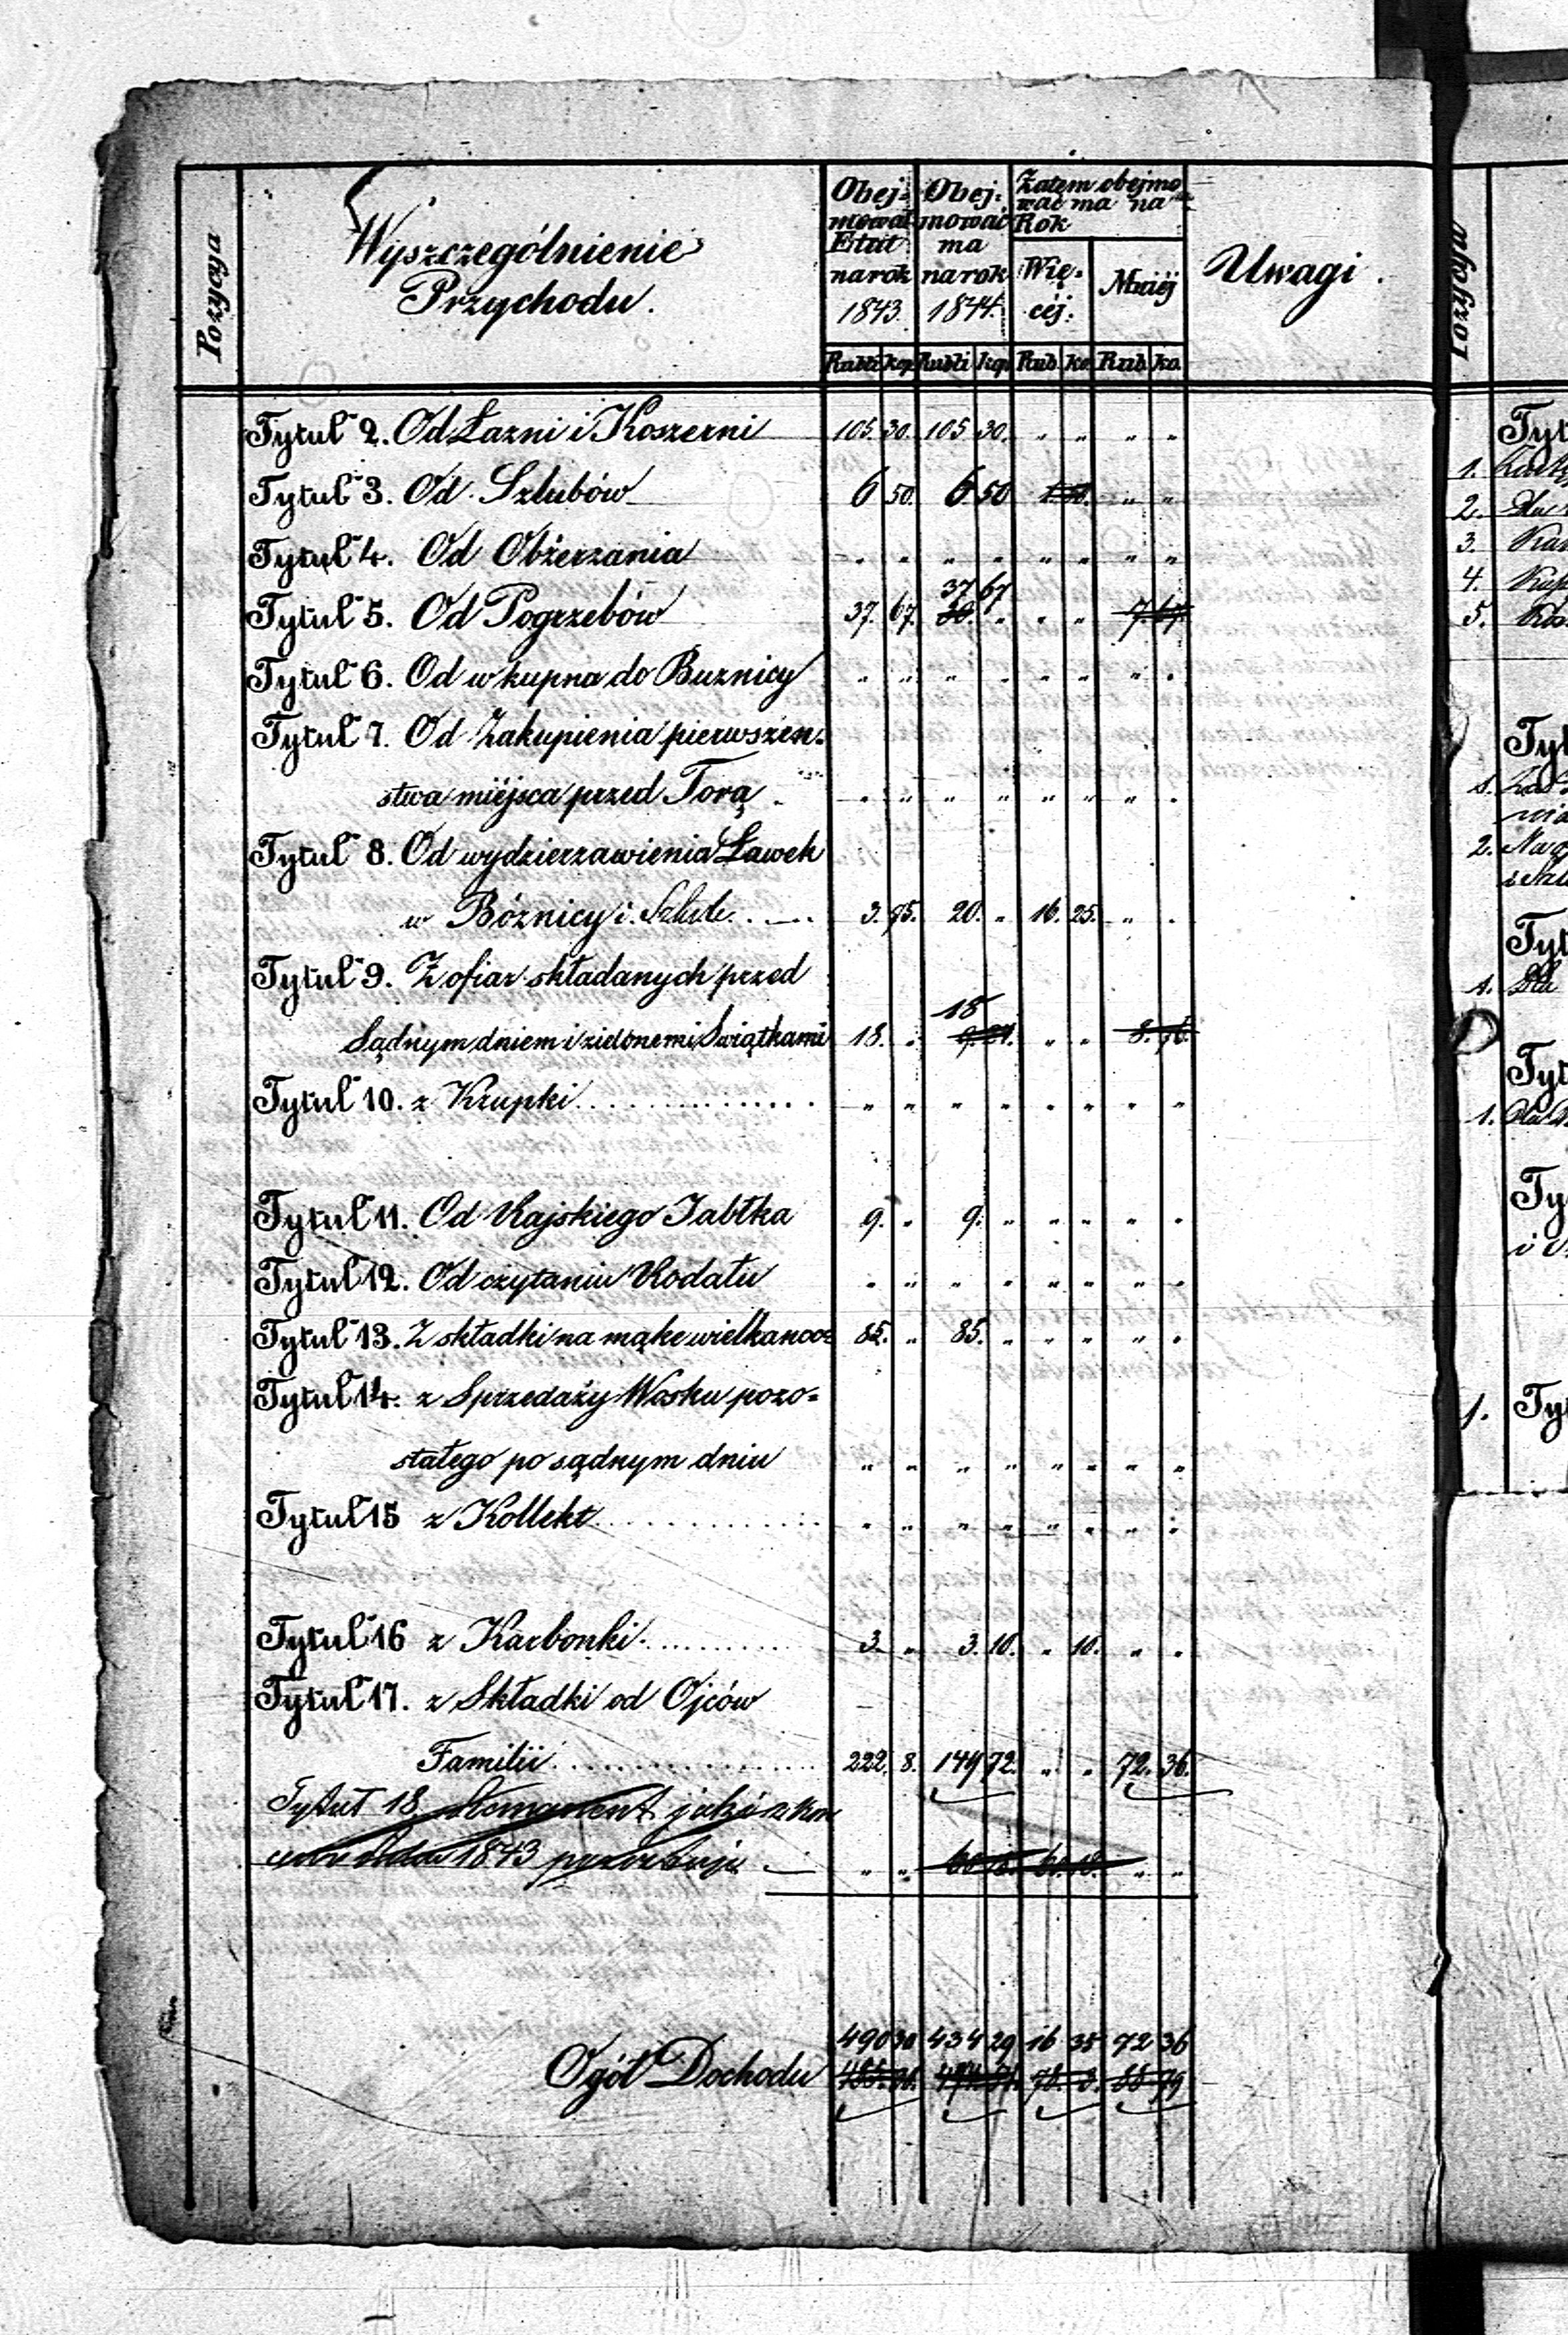 Pozycya
Wyszczególnienie
Przychodu.
Obej-
mował
Etat
na rok
1843.
Obej-
mować
ma
na rok
1844.
Zatem obejmo
wać ma na
Rok
Wię-
céj.
Mniéj
Uwagi.
Rubli kop Rubli kop Rub. ko Rub. ko.
Tytuł 2. Od Łazni i Koszerni 105. 30. 105 30. " " " "
Tytuł 3. Od Szlubów 6 50. 6 50 " "
Tytuł 4. Od Obżerzania " " " " " " " "
37 67
Tytuł 5. Od Pogrzebów 37. 67. 30. " " " 7. 67
Tytuł 6. Od wkupna do Buznicy " " " " " " " "
Tytuł 7. Od Zakupienia pierwszen-
stwa miéjsca przed Torą " " " " " " " "
Tytuł 8. Od wydzierzawienia Ławek
w Bóżnicy i Szkole 3. 95. 20. " 16. 25. " "
Tytuł 9. Z ofiar składanych przed
18
Sądnym dniem i zielonemi Swiątkami 18. " " " 8. 76.
Tytuł 10. z Krupki " " " " " " " "
Tytuł 11. Od Rajskiego Jabłka 9. " 9. " " " " "
Tytuł 12. Od czytania Rodału " " " " " " " "
Tytuł 13. Z składki na mąke wielkanoc 85. " 85. " " " " "
Tytuł 14. z Sprzedaży Wosku pozo-
stałego po sądnym dniu " " " " " " " "
Tytuł 15 z Kollekt " " " " " " " "
Tytuł 16 z Karbonki 3. " 3. 10. " 10. " "
Tytuł 17. z Składki od Ojców
Familii 222. 8. 149 72. " " 72. 36.
Tytuł 18 Remanent jaki z
1843 " " " "
490 30 434 29 16 35 72 36
Ogół Dochodu 78. 88 79
Pozycya
Tyt
1.
2.
3.
4.
5.
Tyt
1.
2.
Tyt
1. Dla
Tyt
1.
Ty
1. Ty